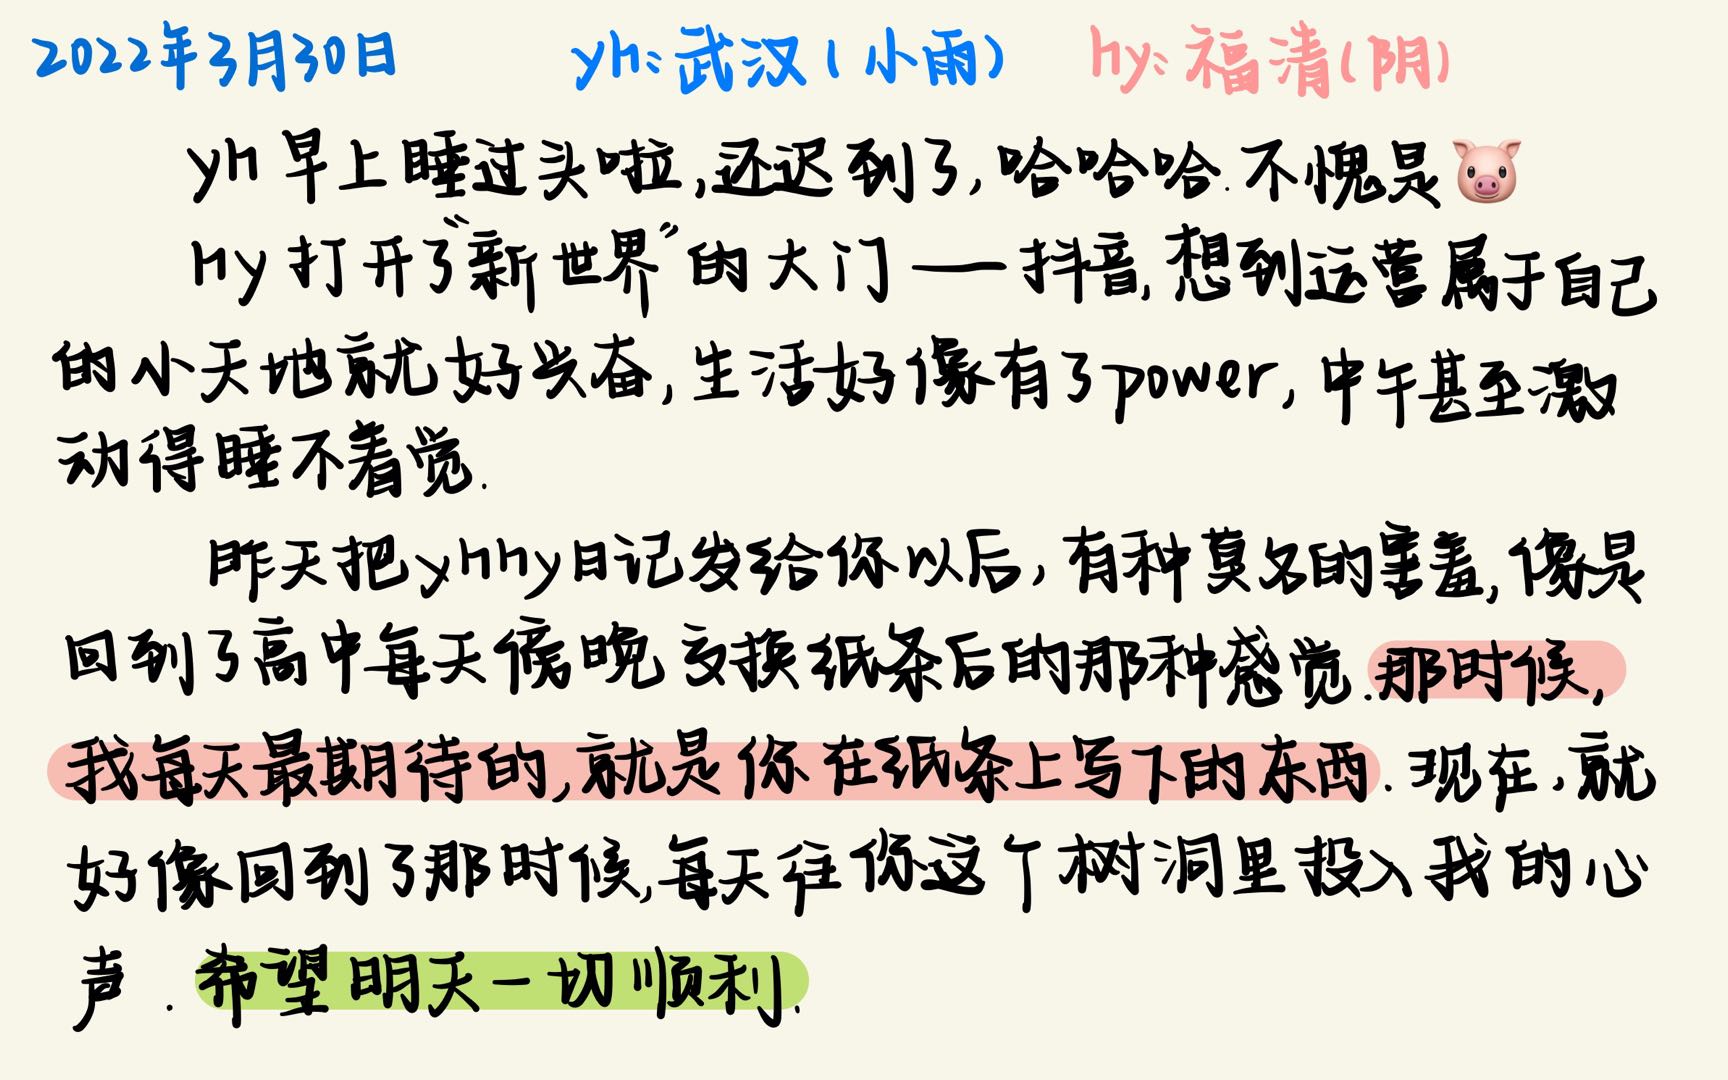 2022年3月30日 yh:武汉(小雨) hy:福清(阴)
yh早上睡过头啦,还迟到了,哈哈哈.不愧是🐷
hy打开了“新世界”的大门——抖音,想到运营属于自己
的小天地就好兴奋,生活好像有了power,中午甚至激
动得睡不着觉.
昨天把yhhy日记发给你以后,有种莫名的害羞,像是
回到了高中每天傍晚交换纸条后的那种感觉.那时候,
我每天最期待的,就是你在纸条上写下的东西.现在,就
好像回到了那时候,每天往你这个树洞里投入我的心
声.希望明天一切顺利.